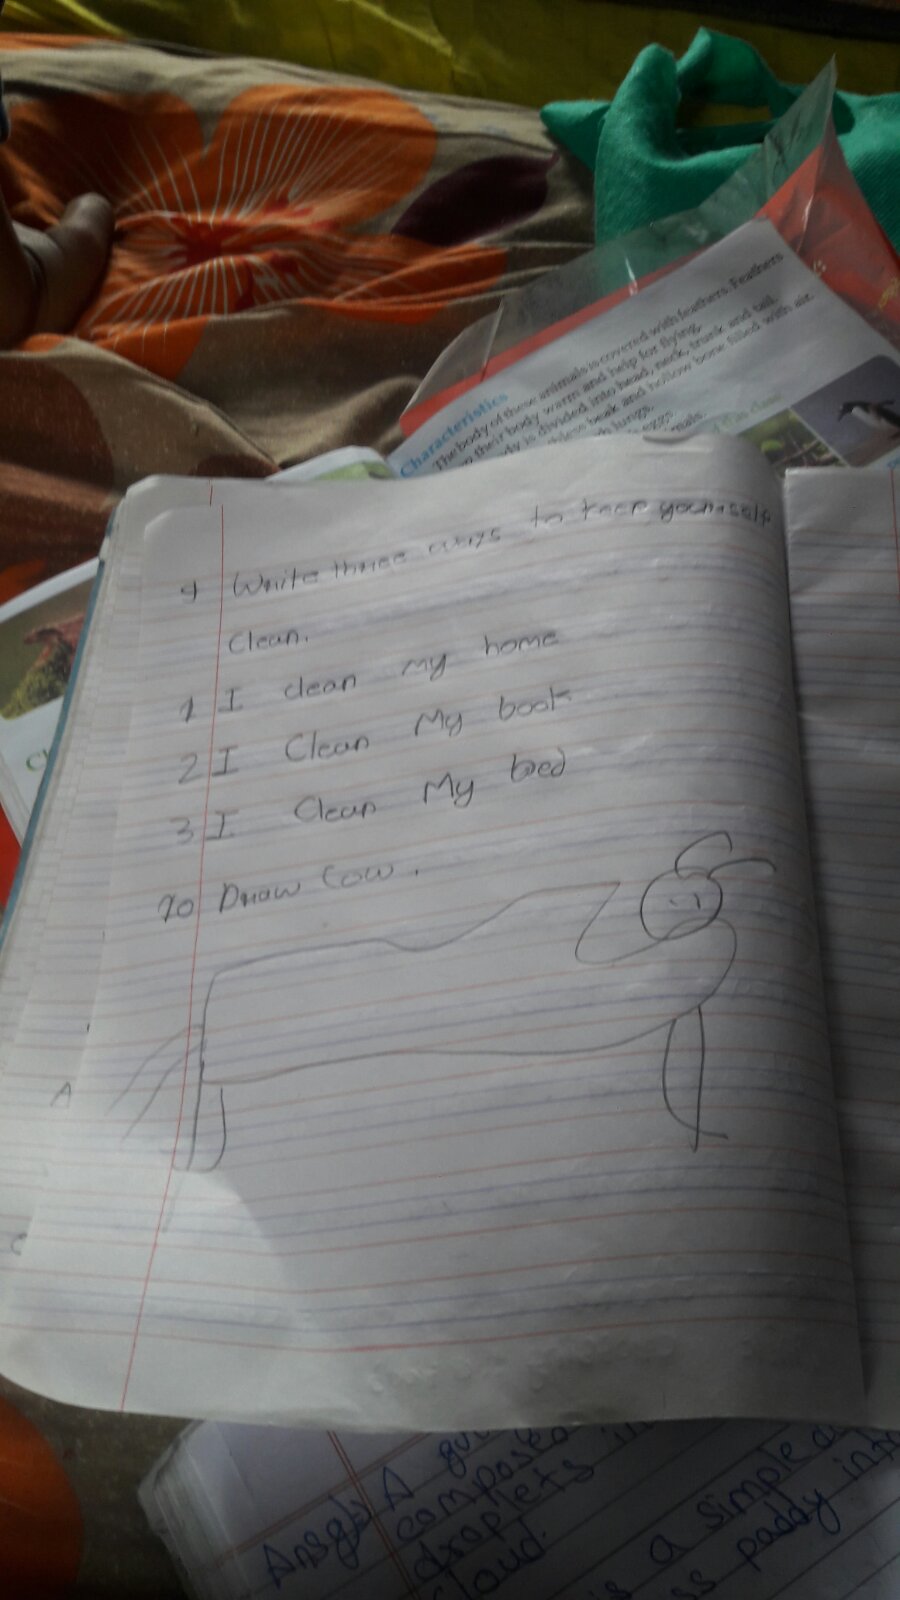 Characteristics
The body of these animals is covered with feathers. Feathers
their body warm and help for flying.
is divided into head, neck, trunk and tail.
beak and hollow bone filled with air.
lungs.
eggs
9 Write three ways to keep yourself
Clean.
1 I clean my home
2 I Clean My book
3 I Clean My bed
10 Draw Cow.
A
compose
droplets in
cloud.
a simple
paddy into